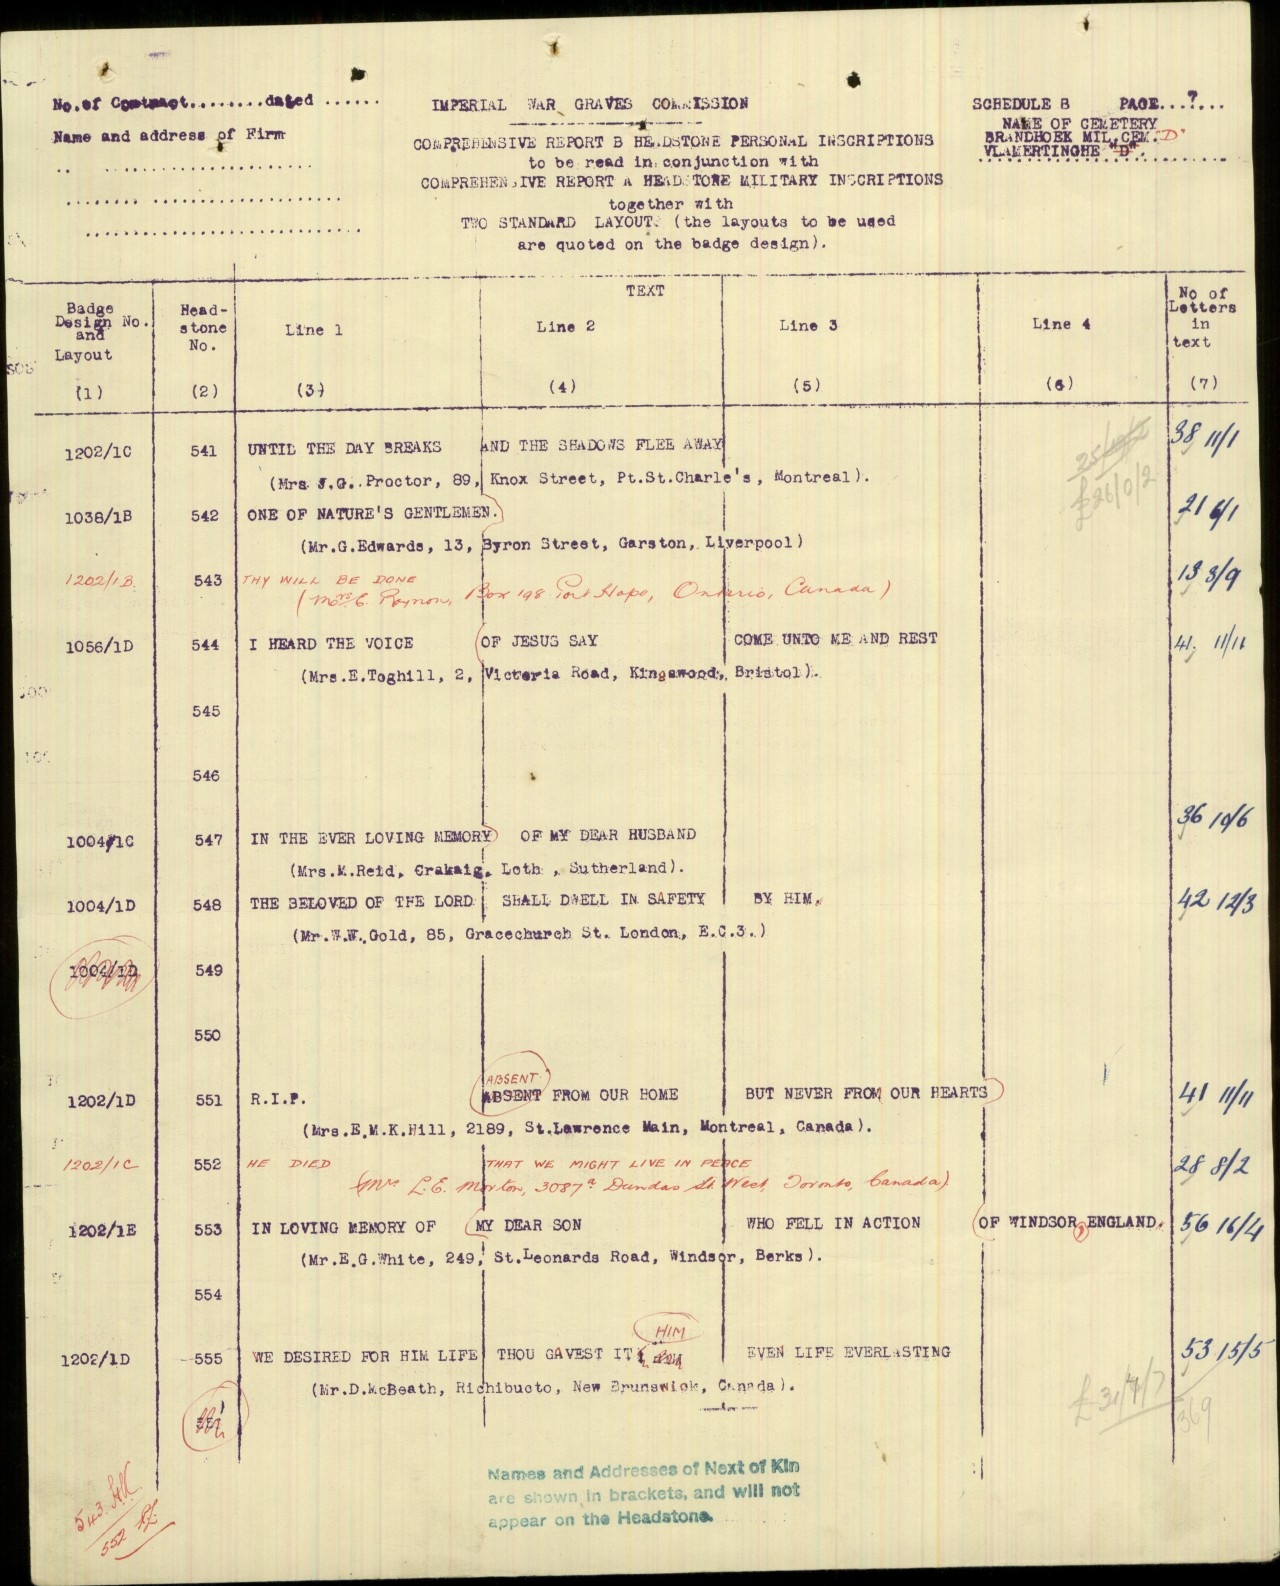 No.of Contract........dated ......
IMPERIAL WAR GRAVES COMMISSION
SCHEDULE B PAGE...7...
Name and address of Firm
COMPREHENSIVE REPORT B HEADSTONE PERSONAL INSCRIPTIONS
NAME OF CEMETERY
BRANDHOEK MIL.CEM. D
to be read in conjunction with
VLAMERTINGHE "D".
COMPREHENSIVE REPORT A HEADSTONE MILITARY INSCRIPTIONS
together with
TWO STANDARD LAYOUTS (the layouts to be used
are quoted on the badge design).
TEXT
Badge Design No. and Layout
Head-stone No.
Line 1
Line 2
Line 3
Line 4
No of Letters in text
(1) (2) (3) (4) (5) (6) (7)
1202/1C 541 UNTIL THE DAY BREAKS AND THE SHADOWS FLEE AWAY 38 11/1
(Mrs J.G. Proctor, 89, Knox Street, Pt.St.Charle's, Montreal).
£26/0/2
1038/1B 542 ONE OF NATURE'S GENTLEMEN. 21 6/1
(Mr.G.Edwards, 13, Byron Street, Garston, Liverpool)
1202/1B. 543 THY WILL BE DONE 13 3/9
(Mrs C. Box 198 Port Hope, Ontario, Canada)
1056/1D 544 I HEARD THE VOICE OF JESUS SAY COME UNTO ME AND REST 41 11/11
(Mrs.E.Toghill, 2, Victoria Road, Kingswood, Bristol).
545
546
1004/1C 547 IN THE EVER LOVING MEMORY OF MY DEAR HUSBAND 36 10/6
(Mrs.M.Reid, Crakaig, Loth , Sutherland).
1004/1D 548 THE BELOVED OF THE LORD SHALL DWELL IN SAFETY BY HIM. 42 12/3
(Mr.W.W.Gold, 85, Gracechurch St. London, E.C.3.)
1004/1D 549
550
ABSENT
1202/1D 551 R.I.P. ABSENT FROM OUR HOME BUT NEVER FROM OUR HEARTS 41 11/11
(Mrs.E.M.K.Hill, 2189, St.Lawrence Main, Montreal, Canada).
1202/1C 552 HE DIED THAT WE MIGHT LIVE IN PEACE 28 8/2
(Mrs L.E. Morton, 3087a Dundas St. West, Toronto, Canada)
1202/1E 553 IN LOVING MEMORY OF MY DEAR SON WHO FELL IN ACTION OF WINDSOR, ENGLAND. 56 16/4
(Mr.E.G.White, 249, St.Leonards Road, Windsor, Berks).
554
HIM
1202/1D 555 WE DESIRED FOR HIM LIFE THOU GAVEST IT EVEN LIFE EVERLASTING 53 15/5
(Mr.D.McBeath, Richibucto, New Brunswick, Canada).
369
Names and Addresses of Next of Kin
are shown in brackets, and will not
appear on the Headstone.
543
552